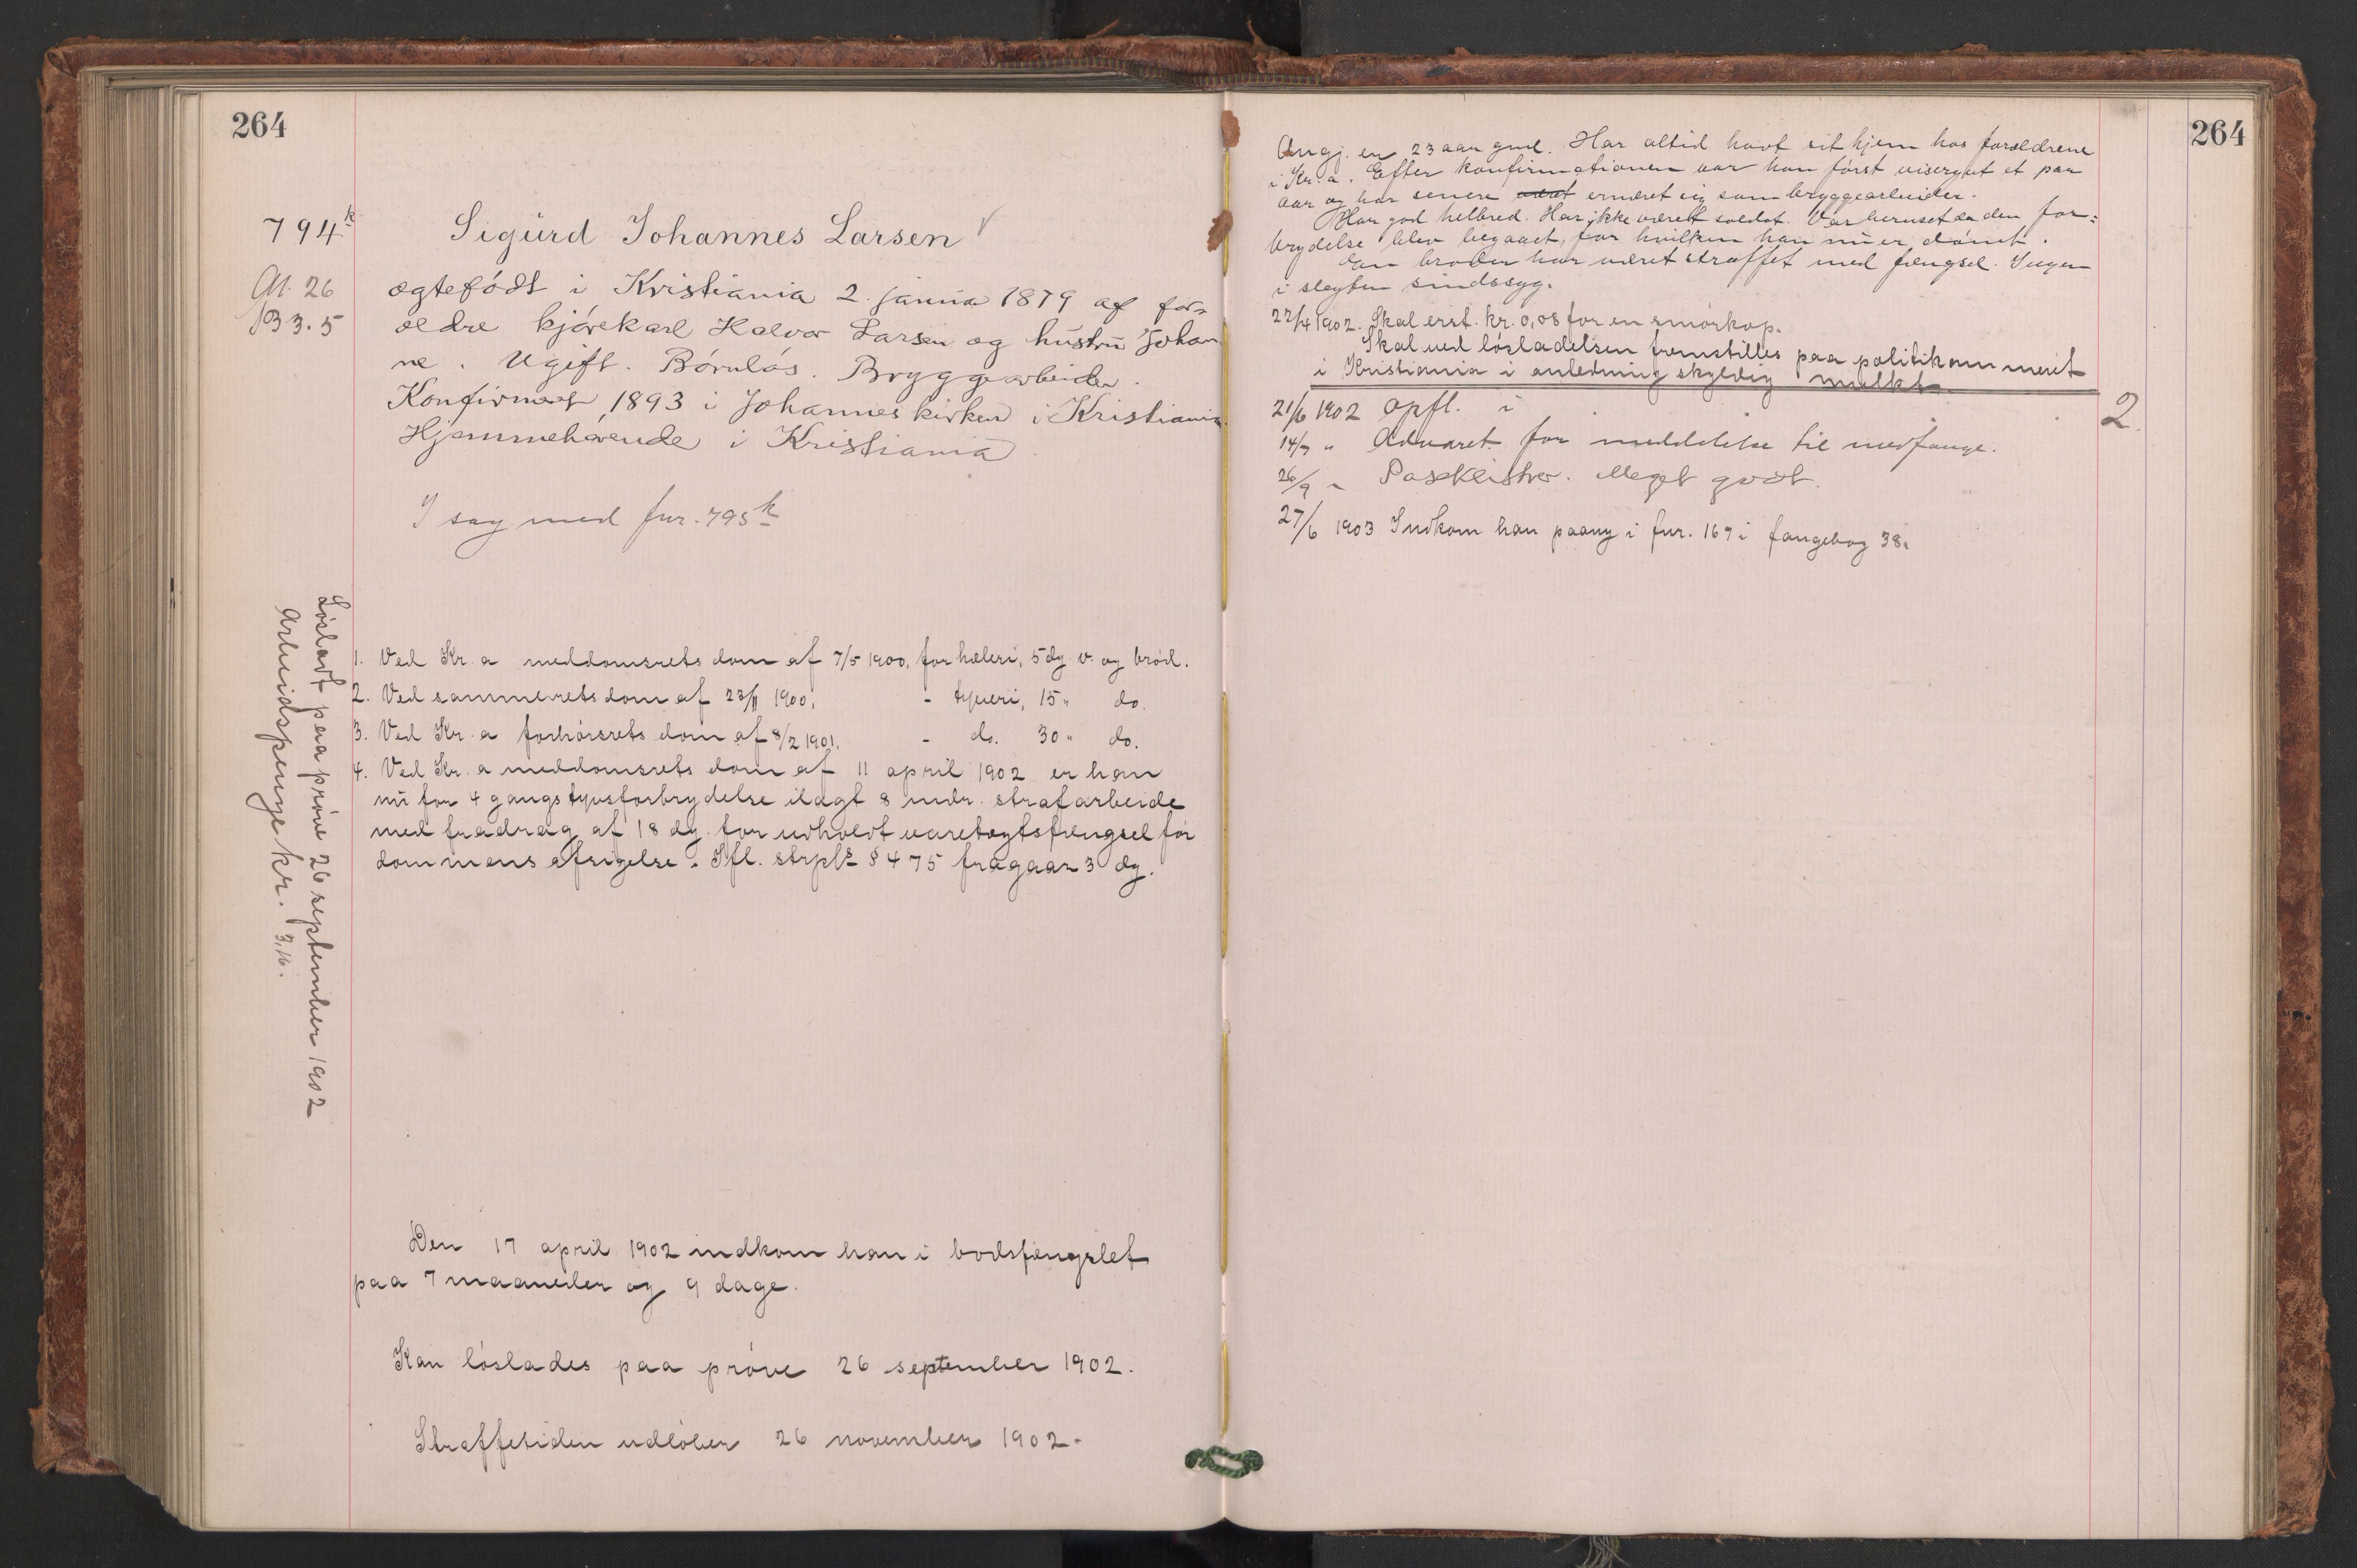 264
794k
Al. 26
B 3.5
Sigurd Johannes Larsen
ægtefödt i Kristiania 2 janua 1879 af for-
ældre kjörekarl Halvor Larsen og hustru Johan
ne. Ugift. Börnlös. Bryggearbeider.
Konfirmert 1893 i Johanneskirken i Kristiania
Hjemmehörende i Kristiania
I sag med fnr. 795k
1. Ved Kr.a meddomsrets dom af 7/5 1900, for hæleri, 5 dg v. og bröd.
2. Ved sammerets dom af 23/11 1900, - tyveri, 15 " do.
3. Ved Kr.a forhörsrets dom af 8/2 1901, - do. 30 " do.
4. Ved Kr.a meddomsrets dom af 11 april 1902 er han
nu for 4 gangs tyvsforbrydelse ilagt 8 mdr. strafarbeide
med fradrag af 18 dg. for udholdt varetægtsfængsel för
dommens afsigelse. Ifl. strpls § 475 fragaar 3 dg.
Lösladt paa pröve 26 september 1902
Arbeidspenge kr. 3,16.
Den 17 april 1902 indkom han i bodsfængslet
paa 7 maaneder og 9 dage.
Kan löslades paa pröve 26 september 1902.
Straffetiden udlöber 26 november 1902.
264
Angj. er 23 aar gml. Har altid havt sit hjem hos forældrene
i Kr.a. Efter konfirmationen var han först visergut et par
aar og har senere været ernæret sig som bryggearbeider.
Har god helbred. Har ikke været soldat. Var beruset da den for=
brydelse blev begaaet, for hvilken han nu er dömt.
En broder har været straffet med fængsel. Ingen
i slegten sindssyg.
22/4 1902. Skal erst. kr. 0,08 for en smörkop.
Skal ved lösladelsen fremstilles paa politikammeret
i Kristiania i anledning skyldig mulkt
21/6 1902 Opfl. i 2.
14/7 " Advaret for meddelelse til medfange.
26/9 " Paseklister. Meget godt.
27/6 1903 Indkom han paany i fnr. 167 i fangebog 38.